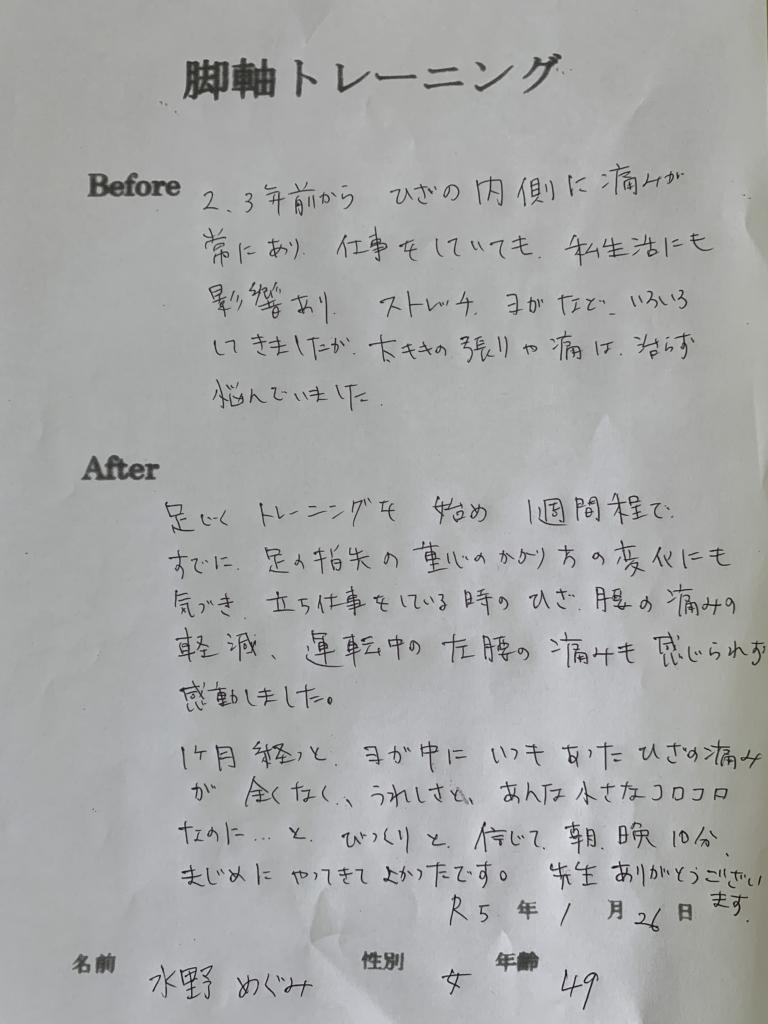 脚軸トレーニング
Before
2、3年前から ひざの内側に痛みが
常にあり、仕事をしていても、私生活にも
影響あり、ストレッチ、ヨガなど、いろいろ
してきましたが、太ももの張りや痛は、治らず
悩んでいました。
After
足じく トレーニングを 始め 1週間程で、
すでに、足の指先の重心のかかり方の変化にも
気づき、立ち仕事をしている時のひざ、腰の痛みの
軽減、運転中の左腰の痛みも感じられず
感動しました。
1ヶ月経つと、ヨガ中に いつもあったひざの痛み
が 全くなく、うれしさと、あんな小さなコロコロ
なのに…と、びっくりと、信じて、朝、晩10分、
まじめに やってきてよかったです。 先生ありがとうござい
ます。
R5年 1月 26日
名前 水野 めぐみ 性別 女 年齢 49